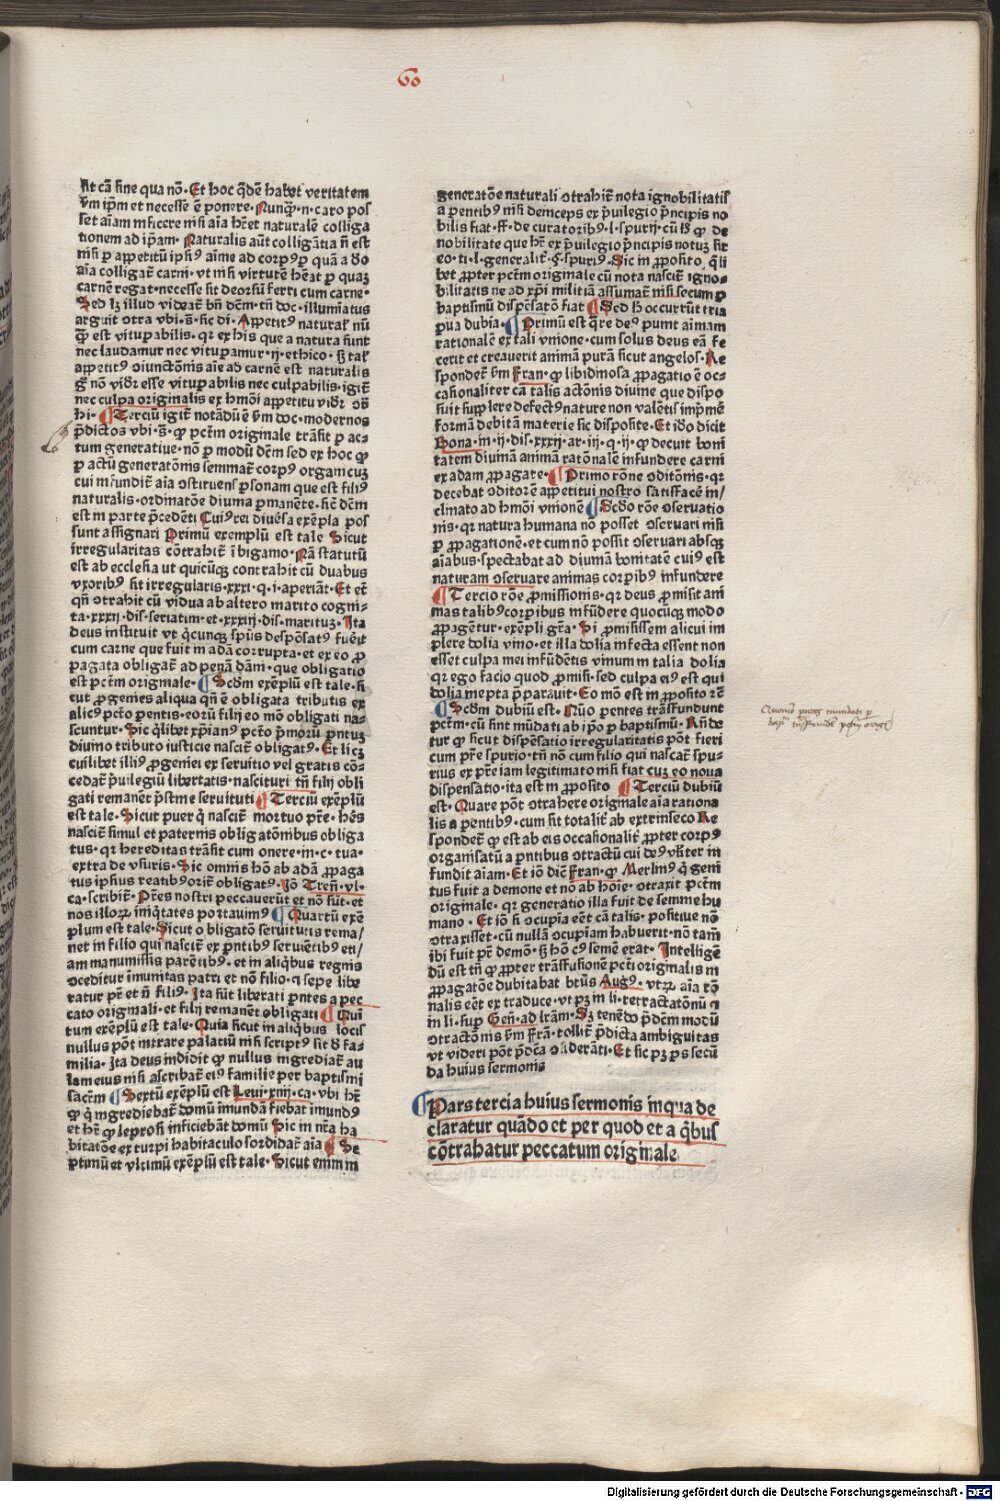 60
sit cā sine qua nō. Et hoc q̄dē habet veritatem
ẜm ip̄m et necesse ē ponere. Nunq̄ꝫ .n. caro pos
set aīam inficere nisi aīa hr̄et naturalē colliga
tionem ad ip̄am. Naturalis aūt colligātia nō est
nisi ꝑ appetitū ipsiꝰ aīme ad corpꝰ ꝑ quā a deo
aīa colligat̄ carni. vt nisi virtutē hēat ꝑ quaꝫ
carnē regat. necesse sit deorsū ferri cum carne.
Sed lꝫ illud videat̄ bn̄ dēm. tn̄ doc. illumiatus
arguit ꝯtra vbi .s. sic di. Appetitꝰ natural' nūꝫ
q̄ꝫ est vitupabilis. qr ex his que a natura sunt
nec laudamur nec vitupamur .ij. ethico. ß tal'
appetitꝰ ꝯiunctōnis aīe ad carnē est naturalis
g̊ nō videt̄ esse vitupabilis nec culpabilis. igit̄
nec culpa originalis ex hmōi appetitu videt̄ ꝯtra
hi. Terciū igit̄ notādū ē ẜm doc. modernos
p̄dictos vbi .s. ꝙ pctm̄ originale trāsit ꝑ ac
tum generatiue. nō ꝑ modū dēm sed ex hoc ꝙ
ꝑ actū generatōnis seminat̄ corpꝰ organicuꝫ
cui infundit̄ aīa ꝯstituens ꝑsonam que est filiꝰ
naturalis. ordinatōe diuina ꝑmanēte. sic̄ dēm
est in parte p̄cedēti Cuiꝰ rei diuersa exēpla pos
sunt assignari Primū exemplū est tale Sicut
irregularitas cōtrahit̄ ī bigamo. Nā statutū
est ab ecclesia ut quicūqꝫ contrahit cū duabus
vxoribꝰ sit irregularis .xxxi. q. i. aperiāt. Et etiā
qn̄ ꝯtrahit cū vidua ab altero marito cogni-
ta .xxxij. dis. seriatim. et .xxxiij. dis. maritus. Ita
deus instituit vt q̄cunqꝫ sp̄us despēsatꝰ fuēit
cum carne que fuit in adā corrupta. et ex eo ꝓ
pagata obligat̄ ad penā dāni. que obligatio
est pctm̄ originale. Scd̄m exēplū est tale. si
cut ꝓgenies aliqua qn̄ ē obligata tributis ex
alicꝰ pctō parentis. eorū filij eo mō obligati na
scuntur. Sic q̄libet xp̄ianꝰ pctō p̄morū parentuꝫ
diuino tributo iusticie nascit̄ obligatꝰ. Et licꝫ
cuilibet illiꝰ ꝓgeniei ex seruitio vel gratis cō-
cedat̄ priuilegiū libertatis. nascituri tn̄ filij obli
gati remanēt p̄stine seruituti Terciū exēplū
est tale. Sicut puer q̄ nascit̄ mortuo pr̄e. hēs
nascit̄ simul et paternis obligatōnibus obliga
tus. qr hereditas trāsit cum onere .in .c. tua.
extra de vsuris. Sic omnis hō ab adā ꝓpaga
tus ipsius reatibꝰ orit̄ obligatꝰ. Iō Tren̄ .vl.
ca. scribit̄. Pr̄es nostri peccauerūt et nō sūt. et
nos illoꝝ iniq̄tates portauimꝰ Quartū exē
plum est tale. Sicut ꝯ obligatō seruitutis rema/
net in filio qui nascit̄ ex parentibꝰ seruientibꝰ eti/
am manumissis parētibꝰ. et in aliq̄bus regnis
ꝯceditur īmunitas patri et nō filio. ⁊ sepe libe
ratur pr̄ et nō filiꝰ. Ita sūt liberati parentes a pec
cato originali. et filij remanēt obligati Quī
tum exēplū est tale. Quia sicut in aliq̄bus locis
nullus pōt intrare palatiū nisi scriptꝰ sit d̄ fa-
milia. Ita deus indidit ꝙ nullus ingrediat̄ au
lam eius nisi ascribat̄ eiꝰ familie per baptismi
sacrm̄ Sextū exēplū est Leui. xiiij. ca. vbi hr̄
ꝙ q̄ ingrediebat̄ domū imundā fiebat imundꝰ
et hr̄ ꝙ leprosi inficiebāt domū Sic in nr̄a ha
bitatōe ex turpi habitaculo sordidat̄ aīa Se
ptimū et vltimū exēplū est tale. Sicut enim in
generatōe naturali ꝯtrahit̄ nota ignobilitatis
a parentibꝰ nisi deinceps ex priuilegio principis no
bilis fiat .ff. de curatoribꝰ. l. spurij. cū ß ꝙ de
nobilitate que hr̄ ex priuilegio principis notuꝫ sit
eo. ti. l. generalit̄ .§. spuriꝰ. Sic in ꝓposito q̄li
bet ꝓpter pctm̄ originale cū nota nascit̄ igno-
bilitatis ne ad xp̄i militiā assumat̄ nisi secum ꝑ
baptismū dispēsatō fiat Sed hic occurrūt tria
parua dubia. Primū est q̄re deꝰ punit aīmam
rationalē ex tali vnione. cum solus deus eā fe
cerit et creauerit animā purā sicut angelos. Re
spondet̄ ẜm Fran. ꝙ libidinosa ꝓpagatio ē oc-
casionaliter cā talis actōnis diuine que dispo
suit supplere defectꝰ nature non valētis imp̄me
formā debitā materie sic disposite. Et ideo dicit
Bona. in .ij. dis. xxxij. ar. iij. q. ij. ꝙ decuit boni
tatem diuinā animā ratōnalē infundere carni
ex adam ꝓpagate. Primo rōne ꝯditōnis. qr
decebat ꝯditorē appetitui nostro satisfacē in/
clinato ad hmōi vnionē Scdo rōe ꝯseruatio
nis. qr natura humana nō posset ꝯseruari nisi
ꝑ ꝓpagationē. et cum nō possit ꝯseruari absqꝫ
aīabus. spectabat ad diuinā bonitatē cuiꝰ est
naturam ꝯseruare animas corꝑibꝰ infundere
Tercio rōe ꝓmissionis. qr deus ꝓmisit ani
mas talibꝰ corꝑibus infūdere quocūqꝫ modo
ꝓpagētur. exēpli gr̄a. Si ꝓmisissem alicui im
plere dolia vino. et illa dolia infecta essent non
esset culpa mei infūdētis vinum in talia dolia
qr ego facio quod ꝓmisi. sed culpa eiꝰ est qui
dolia inepta p̄parauit. Eo mō est in ꝓposito rē
Scd̄m dubiū est. Nūo parentes trāsfundunt
pctm̄. cū sint mūdati ab ip̄o ꝑ baptismū. Rn̄de
tur ꝙ sicut dispēsatio irregularitatis pōt fieri
cum pr̄e spurio. tn̄ nō cum filio qui nascat̄ spu-
rius ex pr̄e iam legitimato nisi fiat cuꝫ eo noua
dispensatio. ita est in ꝓposito Terciū dubiū
est. Quare pōt ꝯtrahere originale aīa rationa
lis a parentibꝰ. cum sit totalit̄ ab extrinseco Re
spondet̄ ꝙ est ab eis occasionalit̄ ꝓpter corpꝰ
organisatū a parentibus ꝯtractū cui deꝰ vlr̄ter in
fundit aīam. Et iō dic̄ Fran. ꝙ Merlinꝰ q̄ geni
tus fuit a demone et nō ab hoīe. ꝯtraxit pctm̄
originale. qr generatio illa fuit de semine hu
mano. Et iō si ꝯcupīa eēt cā talis. positiue nō
ꝯtraxisset. cū nullā ꝯcupīam habuerit. nō tam̄
ibi fuit pr̄ demō. ß hō cꝰ semē erat. Intelligē
dū est tn̄ ꝙ ꝓpter trāsfusionē pcti originalis in
ꝓpagatōe dubitabat btūs Augꝰ. vtꝝ aīa rō
nalis eēt ex traduce. vt pꝫ in li. retractatōnū ⁊
in li. sup Gen̄. ad lr̄am. Sꝫ tenēdo p̄dēm modū
ꝯtractōnis ẜm Frā. tollit̄ p̄dicta ambiguitas
vt videri pōt p̄dcā ꝯsiderāti. Et sic pꝫ ps secū
da huius sermonis
Pars tercia huius sermonis in qua de
claratur quādo et per quod et a q̄bus
cōtrahatur peccatum originale
Digitalisierung gefördert durch die Deutsche Forschungsgemeinschaft - DFG